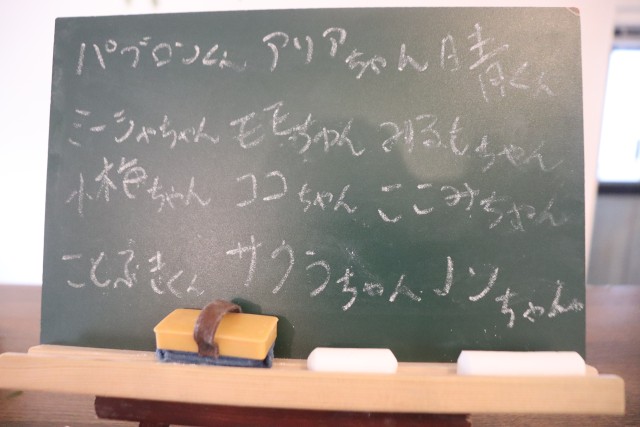 パブロンくん アリアちゃん 晴くん
ミーシャちゃん モモちゃん みるもちゃん
小梅ちゃん ココちゃん ここみちゃん
ことぶきくん サクラちゃん ノンちゃん